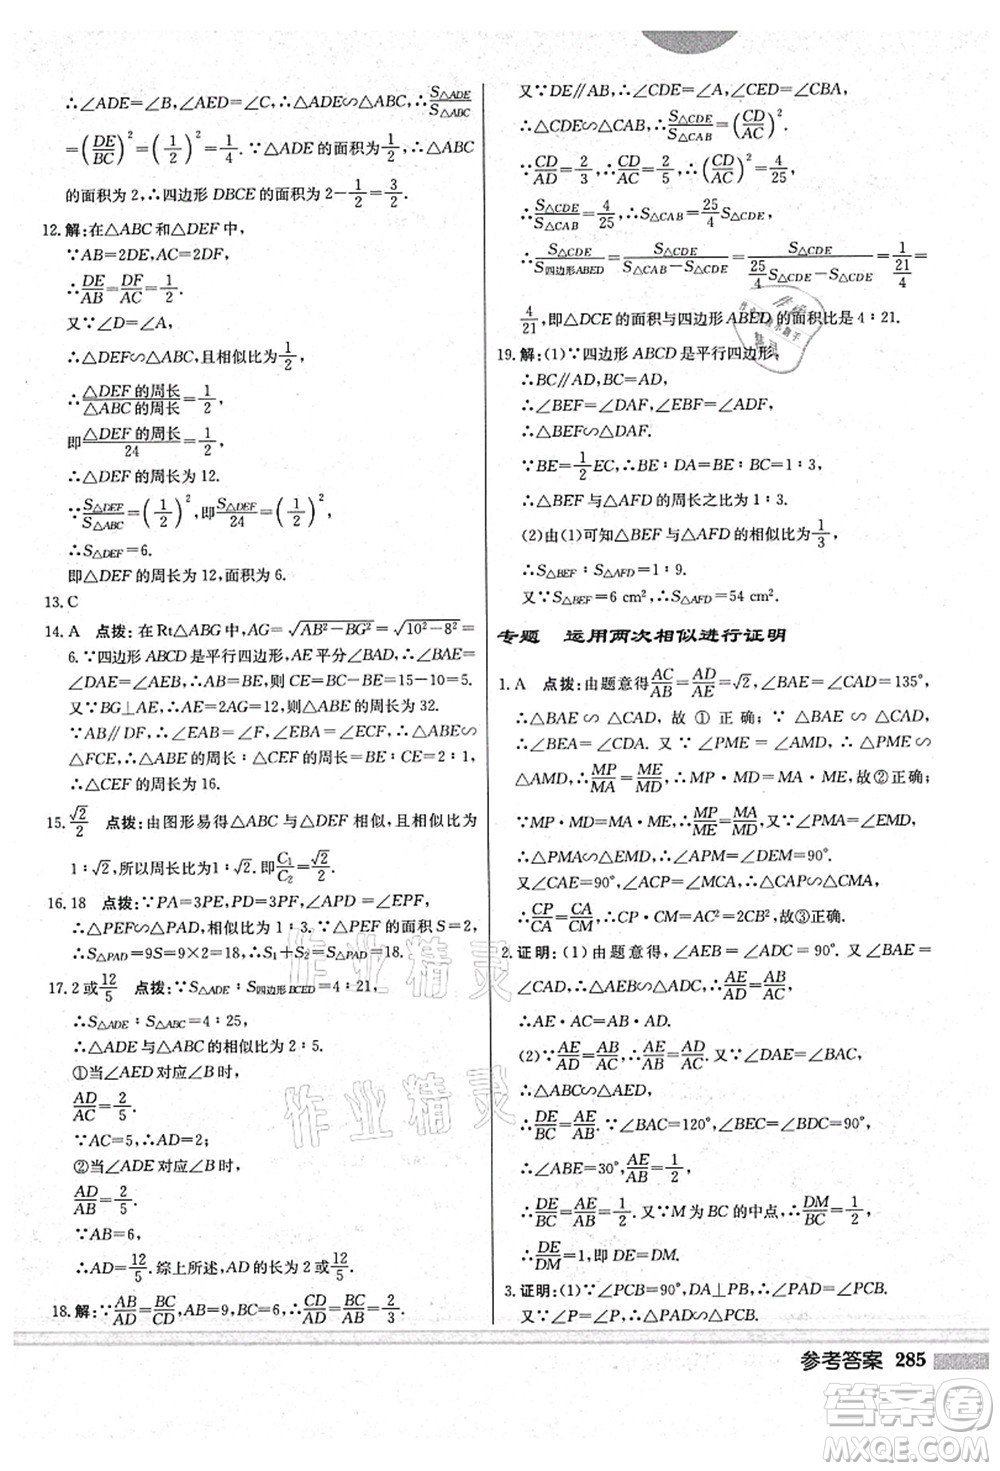 ∴∠ADE=∠B,∠AED=∠C,∴△ADE∽△ABC,∴S△ADE/S△ABC
=(DE/BC)²=(1/2)²=1/4.∵△ADE的面积为1/2,△ABC
的面积为2,∴四边形DBCE的面积为2-1/2=3/2.
12.解:在△ABC和△DEF中,
∵AB=2DE,AC=2DF,
∴DE/AB=DF/AC=1/2.
又∵∠D=∠A,
∴△DEF∽△ABC,且相似比为1/2,
∴△DEF的周长/△ABC的周长=1/2,
即△DEF的周长/24=1/2,
∴△DEF的周长为12.
∵S△DEF/S△ABC=(1/2)²,即S△DEF/24=(1/2)²,
∴S△DEF=6.
即△DEF的周长为12,面积为6.
13.C
14.A 点拨:在Rt△ABG中,AG=√(AB²-BG²)=√(10²-8²)=
6.∵四边形ABCD是平行四边形,AE平分∠BAD,∴∠BAE=
∠DAE=∠AEB,∴AB=BE=10,∴CE=BC-BE=15-10=5.
∵BG⊥AE,∴AE=2AG=12,则△ABE的周长为32.
∵AB∥DF,∴∠EAB=∠F,∠EBA=∠FCE,∴△ABE∽
△FCE,∴△ABE的周长:△CEF的周长=BE:CE=2:1,
∴△CEF的周长为16.
15.√2/2 点拨:由图形易得△ABC与△DEF相似,且相似比为
1:√2,所以周长比为1:√2.即C₁/C₂=√2/2.
16.18 点拨:∵PA=3PE,PD=3PF,∠APD=∠EPF,
∴△PEF∽△PAD,相似比为1:3.∵△PEF的面积S=2,
∴S△PAD=9S=9×2=18,∴S₁+S₂=S△PAD=18.
17.2或12/5 点拨:∵S△ADE:S四边形BCED=4:21,
∴S△ADE:S△ABC=4:25,
∴△ADE与△ABC的相似比为2:5.
①当∠AED对应∠B时,
AD/AC=2/5.
∵AC=5,∴AD=2;
②当∠ADE对应∠B时,
AD/AB=2/5.
∵AB=6,
∴AD=12/5.综上所述,AD的长为2或12/5.
18.解:∵AB/AD=BC/CD,AB=9,BC=6,∴CD/AD=BC/AB=2/3.
又∵DE∥AB,∴∠CDE=∠A,∠CED=∠CBA,
∴△CDE∽△CAB,∴S△CDE/S△CAB=(CD/AC)².
∵CD/AD=2/3,∴CD/AC=2/5,∴(CD/AC)²=4/25,
∴S△CDE/S△CAB=4/25,∴S△CAB=25/4 S△CDE,
∴S△CDE/S四边形ABED=S△CDE/(S△CAB-S△CDE)=S△CDE/(25/4 S△CDE-S△CDE)=1/(21/4)=
4/21,即△DCE的面积与四边形ABED的面积比是4:21.
19.解:(1)∵四边形ABCD是平行四边形,
∴BC∥AD,BC=AD,
∴∠BEF=∠DAF,∠EBF=∠ADF,
∴△BEF∽△DAF.
∵BE=1/2EC,∴BE:DA=BE:BC=1:3,
∴△BEF与△AFD的周长之比为1:3.
(2)由(1)可知△BEF与△AFD的相似比为1/3,
∴S△BEF:S△AFD=1:9.
又∵S△BEF=6 cm²,∴S△AFD=54 cm².
专题 运用两次相似进行证明
1.A 点拨:由题意得AC/AB=AD/AE=√2,∠BAE=∠CAD=135°,
∴△BAE∽△CAD,故①正确;∵△BAE∽△CAD,
∴∠BEA=∠CDA.又∵∠PME=∠AMD,∴△PME∽
△AMD,∴MP/MA=ME/MD,∴MP·MD=MA·ME,故②正确;
∵MP·MD=MA·ME,∴MP/ME=MA/MD.∵∠PMA=∠EMD,
∴△PMA∽△EMD,∴∠APM=∠DEM=90°.
又∠CAE=90°,∠ACP=∠MCA,∴△CAP∽△CMA,
∴CP/CA=CA/CM,∴CP·CM=CA²=2CB²,故③正确.
2.证明:(1)由题意得,∠AEB=∠ADC=90°.又∵∠BAE=
∠CAD,∴△ABE∽△ACD,∴AE/AD=AB/AC,
∴AE·AC=AB·AD.
(2)∵AE/AD=AB/AC,∴AE/AB=AD/AC.又∵∠EAD=∠BAC,
∴△ABC∽△AED,
∴DE/BC=AE/AB.∵∠BAC=120°,∠BEC=∠BDC=90°,
∴∠ABE=30°,∴AE/AB=1/2,
∴DE/BC=AE/AB=1/2.又∵M为BC的中点,∴DM/BC=1/2,
∴DE/DM=1,即DE=DM.
3.证明:(1)∵∠PCB=90°,DA⊥PB,∴∠DAP=∠PCB.
又∵∠P=∠P,∴△APD∽△CPB.
参考答案 285
作业精灵
作业精灵
答案卷
MXQE.COM